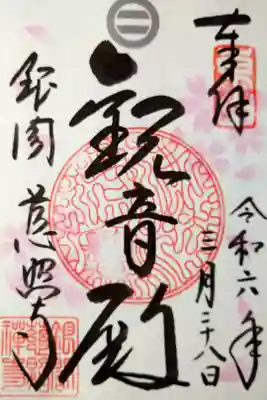 奉拝
令和六年
三月二十八日
観音殿
銀閣 慈照寺